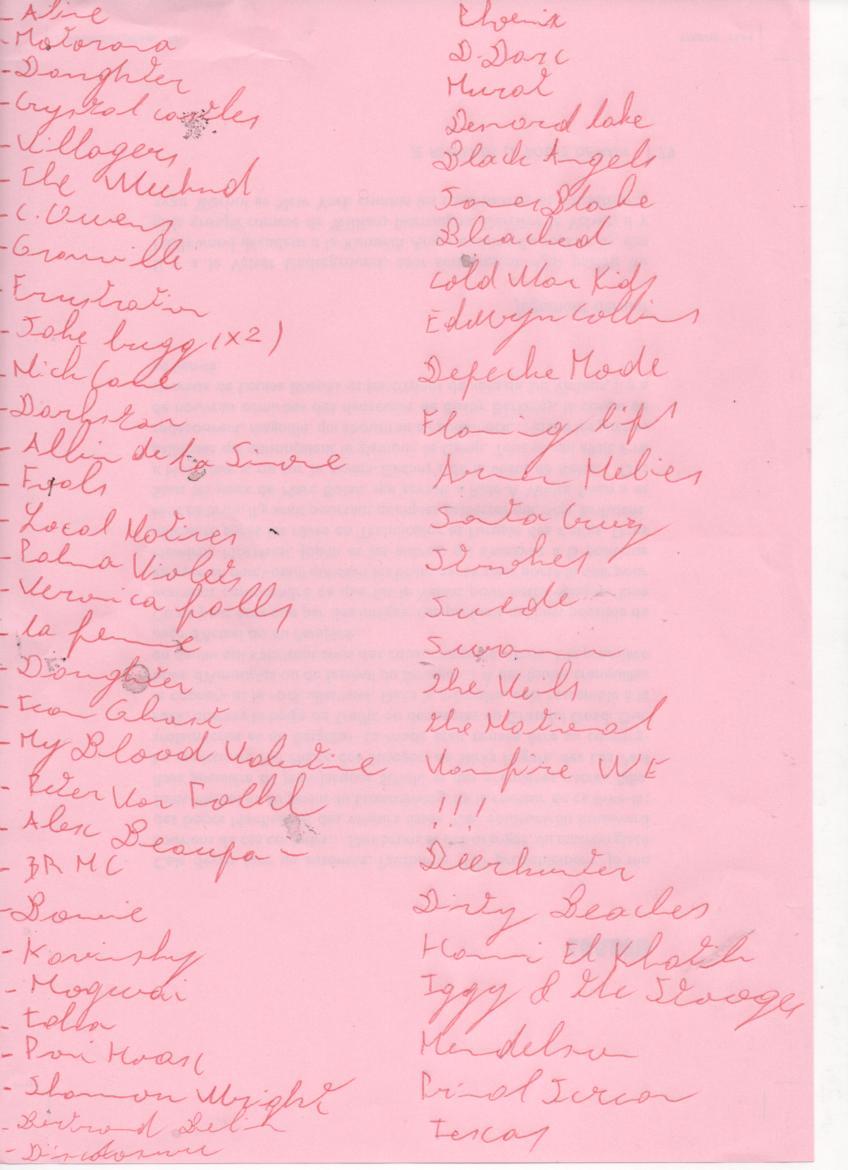 - Aline
- Motorama
- Daughter
- Crystal castles
- Villagers
- The Weeknd
- C. Owens
- Granville
- Frustration
- Jake bugg (x2)
- Nick Cave
- Darkstar
- Albin de la Simone
- Foals
- Local Natives
- Palma Violets
- Veronica falls
- la femme
- Daughter
- Iron Ghost
- My Blood Valentine
- Peter Von Poehl
- Alex Beaupain
- BRMC
- Bowie
- Kavinsky
- Mogwai
- Fauna
- Poni Hoax
- Shannon Wright
- Bertrand Belin
- Disclosure
Phoenix
D. Darc
Murat
Desnord lake
Black Angels
James Blake
Bleached
Cold War Kids
Edwyn Collins
Depeche Mode
Flaming lips
Aman Melies
Santa Cruz
Strokes
Suede
Swann
the Veils
the National
Vampire WE
!!!
Deerhunter
Dirty Beaches
Hanni El Khatib
Iggy & the Stooges
Mendelson
Primal Scream
Texas